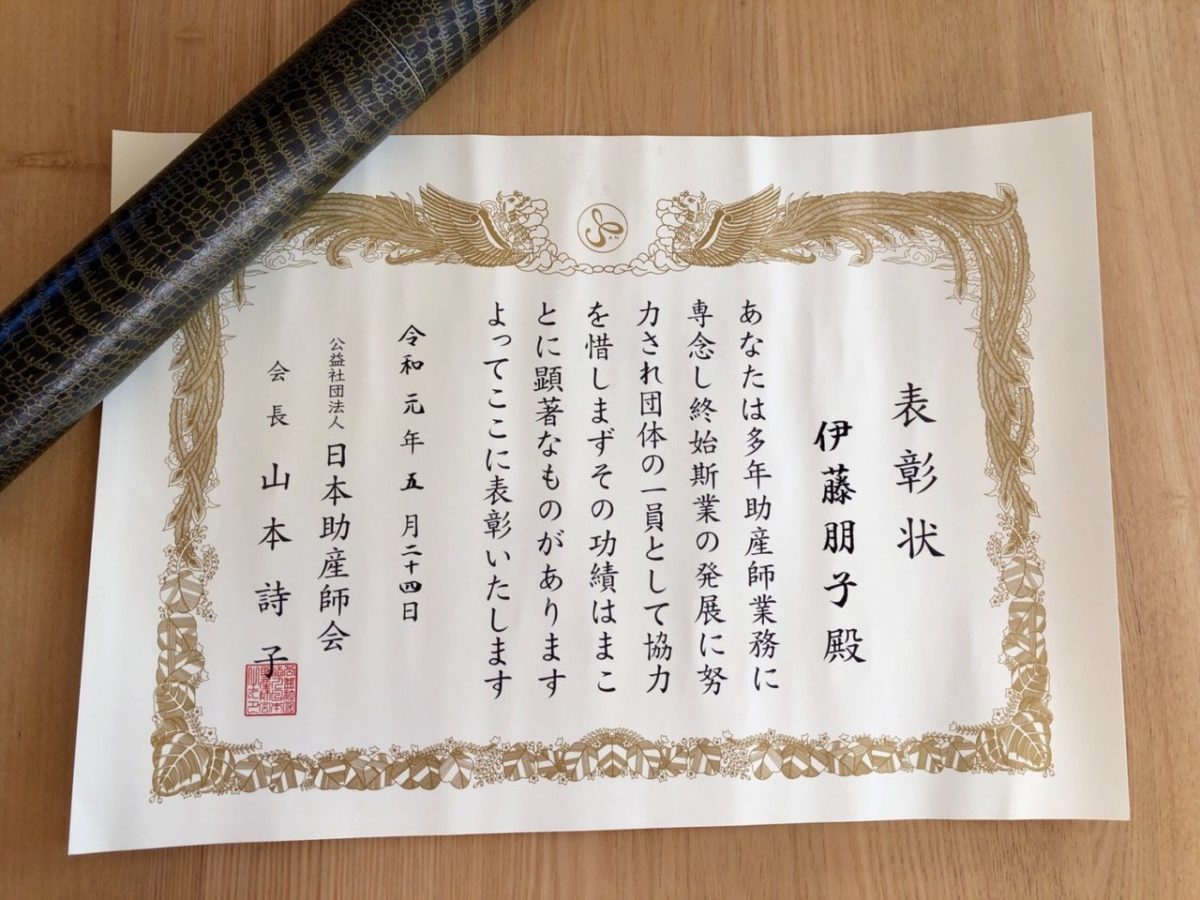 表彰状
伊藤朋子殿
あなたは多年助産師業務に
専念し終始斯業の発展に努
力され団体の一員として協力
を惜しまずその功績はまこ
とに顕著なものがあります
よってここに表彰いたします
令和元年五月二十四日
公益社団法人 日本助産師会
会長 山本詩子